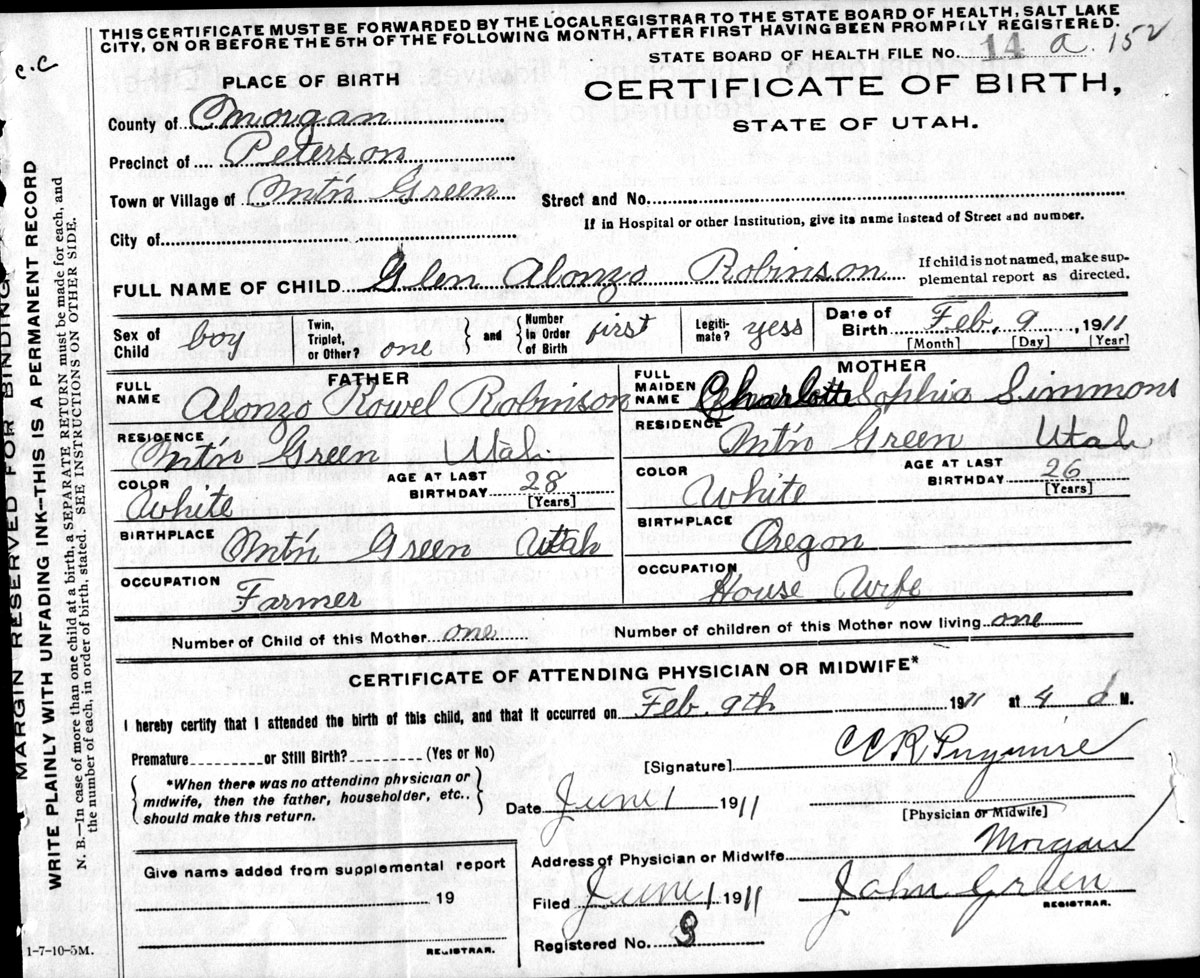 THIS CERTIFICATE MUST BE FORWARDED BY THE LOCAL REGISTRAR TO THE STATE BOARD OF HEALTH, SALT LAKE
CITY, ON OR BEFORE THE 5TH OF THE FOLLOWING MONTH, AFTER FIRST HAVING BEEN PROMPTLY REGISTERED.
c.c
STATE BOARD OF HEALTH FILE No. 14 a. 152
PLACE OF BIRTH
CERTIFICATE OF BIRTH,
STATE OF UTAH.
County of Morgan
Precinct of Peterson
Town or Village of Mt'n Green
Street and No.
If in Hospital or other Institution, give its name instead of Street and number.
City of
FULL NAME OF CHILD Glen Alonzo Robinson
If child is not named, make sup-
plemental report as directed.
Sex of Child boy
Twin, Triplet, or Other? one
and Number in Order of Birth first
Legiti-mate? yess
Date of Birth Feb, 9, 1911
[Month] [Day] [Year]
FATHER
FULL NAME Alonzo Rowel Robinson
RESIDENCE Mt'n Green Utah
COLOR White
AGE AT LAST BIRTHDAY 28 [Years]
BIRTHPLACE Mt'n Green Utah
OCCUPATION Farmer
MOTHER
FULL MAIDEN NAME Charlotte Sophia Simmons
RESIDENCE Mt'n Green Utah
COLOR White
AGE AT LAST BIRTHDAY 26 [Years]
BIRTHPLACE Oregon
OCCUPATION House Wife
Number of Child of this Mother one
Number of children of this Mother now living one
CERTIFICATE OF ATTENDING PHYSICIAN OR MIDWIFE*
I hereby certify that I attended the birth of this child, and that it occurred on Feb. 9th 1911 at 4 M.
Premature or Still Birth? (Yes or No)
[Signature]
*When there was no attending physician or
midwife, then the father, householder, etc.,
should make this return.
Date June 1 1911
[Physician or Midwife]
Address of Physician or Midwife Morgan
Give name added from supplemental report
19
REGISTRAR.
Filed June 1 1911 John Green
REGISTRAR.
Registered No. 3
1-7-10-5M.
MARGIN RESERVED FOR BINDING
WRITE PLAINLY WITH UNFADING INK—THIS IS A PERMANENT RECORD
N. B.—In case of more than one child at a birth, a SEPARATE RETURN must be made for each, and
the number of each, in order of birth, stated. SEE INSTRUCTIONS ON OTHER SIDE.